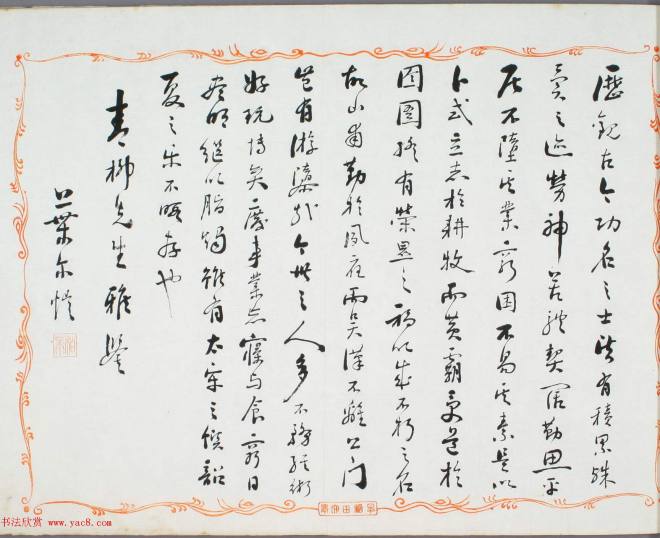 歷觀古今功名之士皆有積累殊
異之迹勞神苦體契闊勤思平
居不墮其業窮困不易其素是以
卜式立志於耕牧而黃霸受道於
囹圄終有榮顯之福以成不朽之名
故山甫勤於夙夜而吳漢不離公門
豈有游惰哉今世之人多不務經術
好玩博弈廢事業忘寢與食窮日
盡明繼以脂燭雖有太牢之饌韶
夏之樂不暇存也
青柳先生雅鑒
葉尔愷
书法欣赏 www.yac8.com